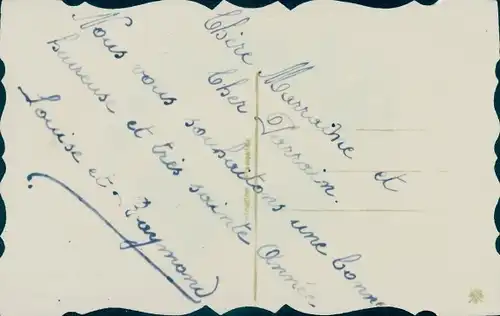 Chère Marraine et
Cher Parrain.
Nous vous souhaitons une bonne
heureuse et très sainte Année.
Louise et Raymond